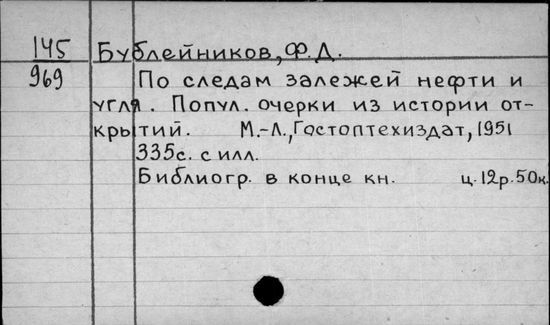 145 Бублейников, Ф.Д.
969 По следам залежей нефти и
угля. Попул. очерки из истории от-
крытий. М.-Л., Гостоптехиздат, 1951
335с. с илл.
Библиогр. в конце кн. ц. 12р. 50к.